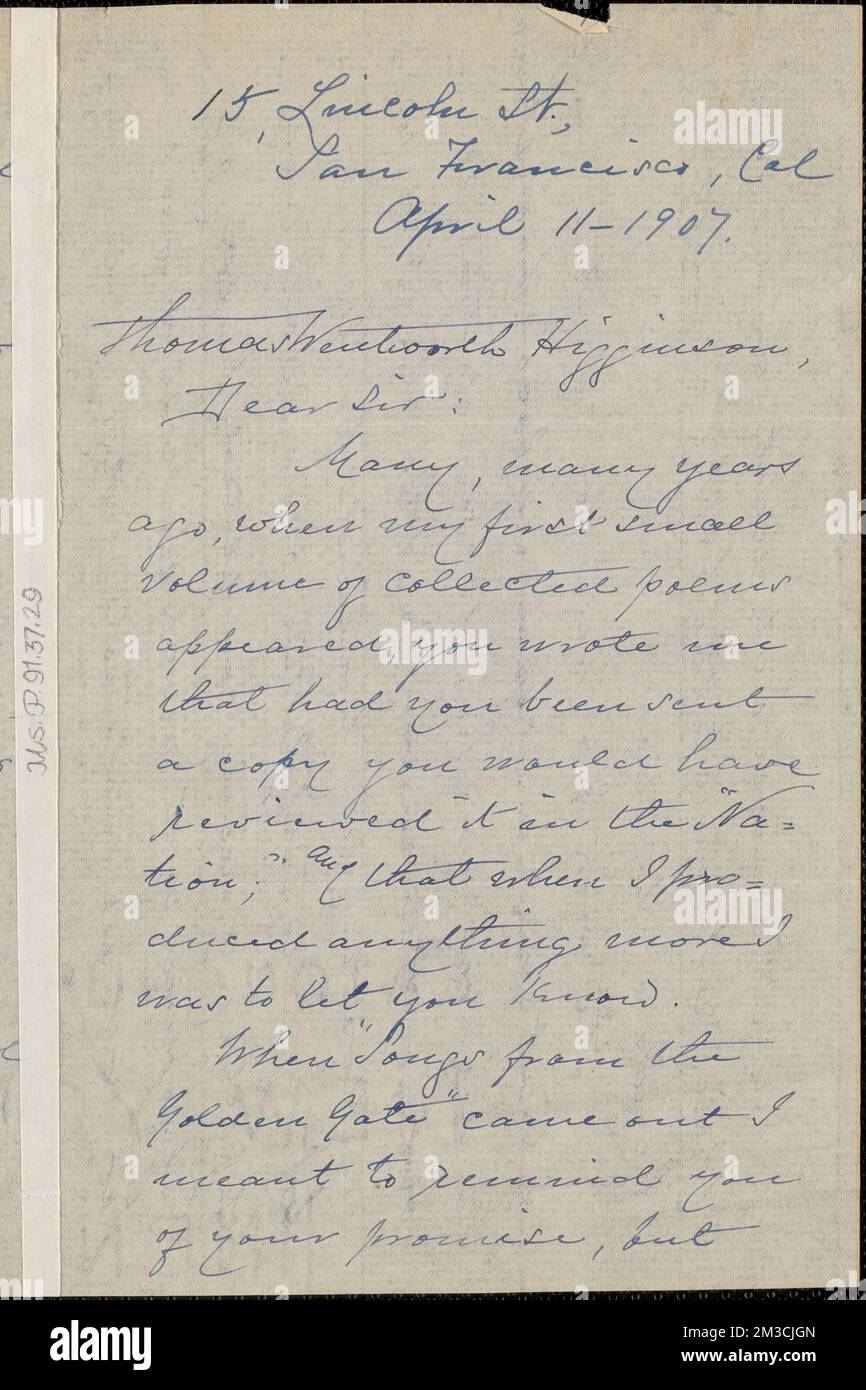 15, Lincoln St.,
San Francisco, Cal
April 11-1907.
Thomas Wentworth Higginson,
Dear Sir:
Many, many years
ago, when my first small
volume of collected poems
appeared, you wrote me
that had you been sent
a copy you would have
reviewed it in the "Na=
tion;" and that when I pro=
duced anything more I
was to let you know.
When "Songs from the
Golden Gate" came out I
meant to remind you
of your promise, but
Ms. P. 91.37.29
alamy
alamy
Image ID: 2M3CJGN
www.alamy.com